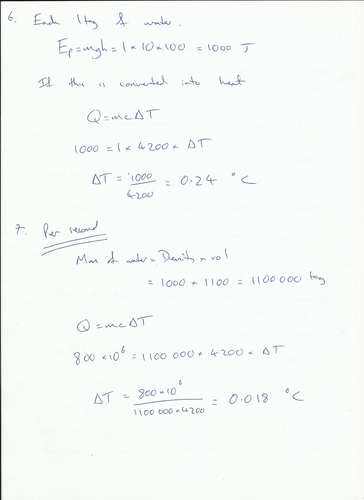 6. Each 1kg of water.
Ep = mgh = 1 × 10 × 100 = 1000 J
If this is converted into heat
Q = mcΔT
1000 = 1 × 4200 × ΔT
ΔT = 1000/4200 = 0.24 °C
7. Per second
Mass of water = Density × vol
= 1000 × 1100 = 1100 000 kg
Q = mcΔT
800 × 10⁶ = 1100 000 × 4200 × ΔT
ΔT = 800 × 10⁶/1100 000 × 4200 = 0.018 °C